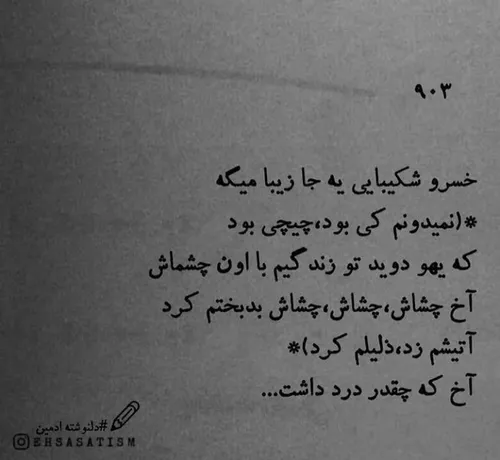 ۹۰۳
خسرو شکیبایی یه جا زیبا میگه
*(نمیدونم کی بود،چیچی بود
که یهو دوید تو زندگیم با اون چشماش
آخ چشاش،چشاش،چشاش بدبختم کرد
آتیشم زد،ذلیلم کرد)*
آخ که چقدر درد داشت...
#دلنوشته ادمین
EHSASATISM